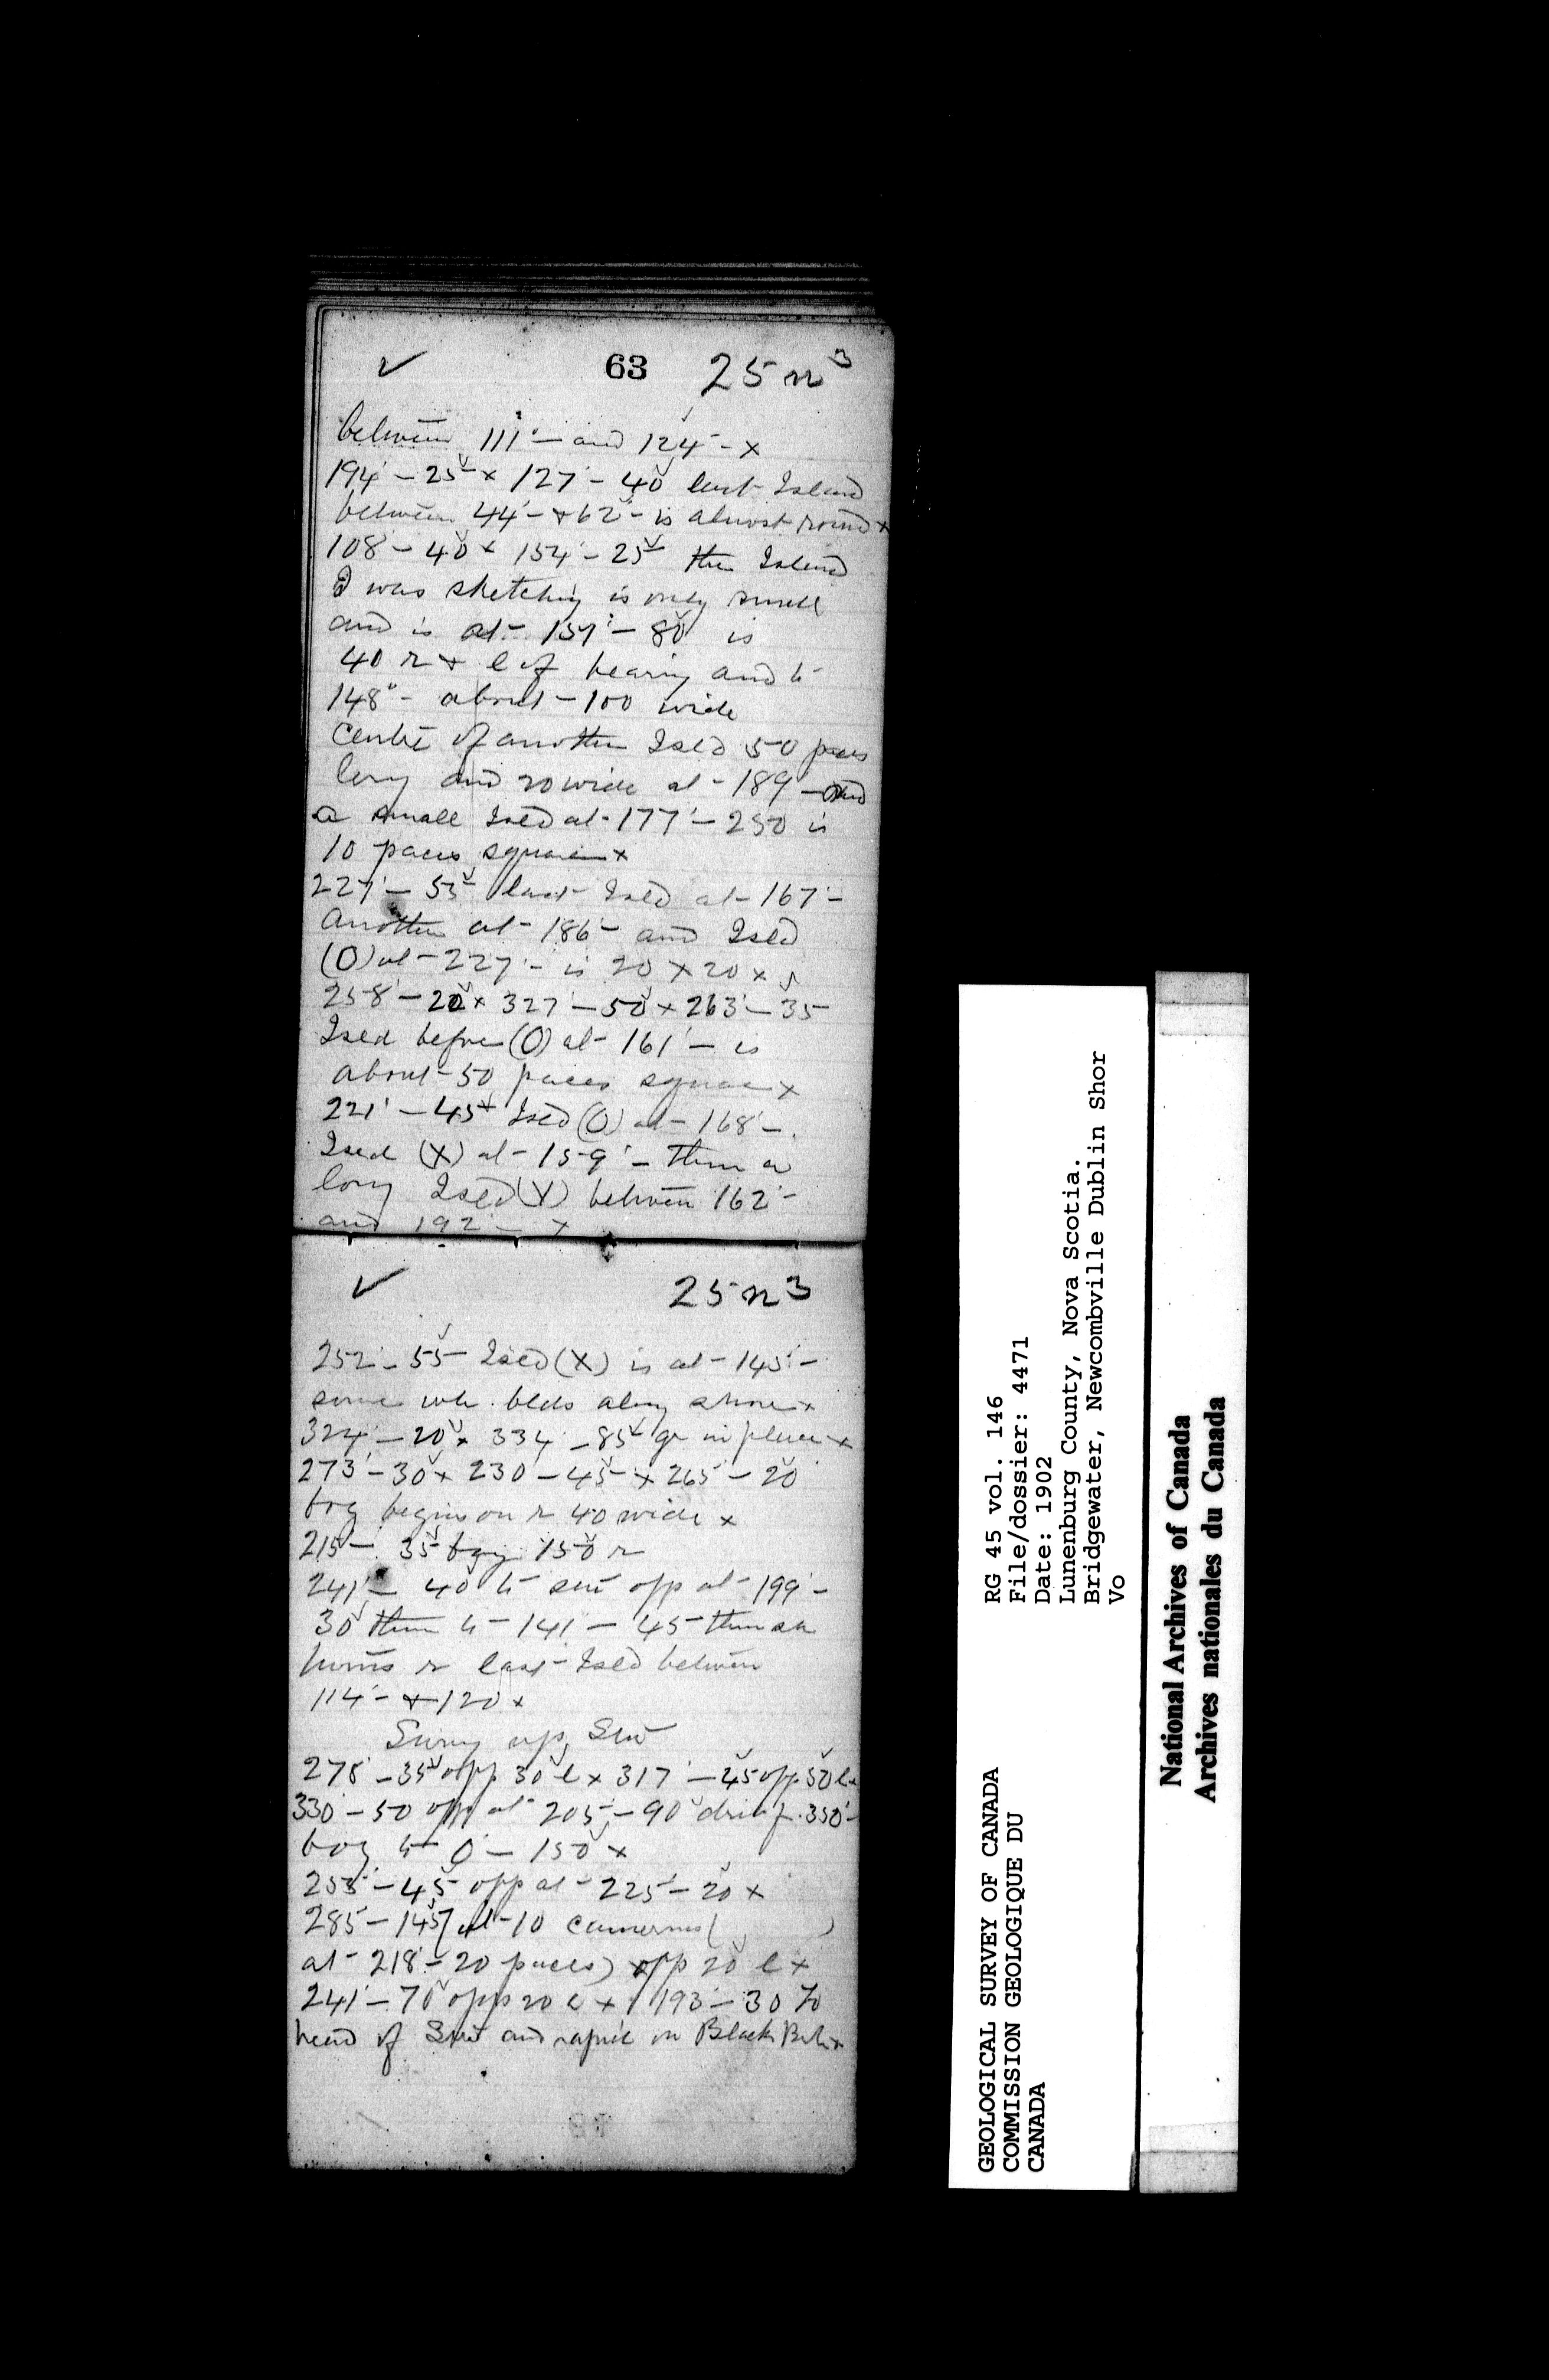 ✓ 63 25 n³
between 111°— and 124°— x
194° — 25 x 127° — 40 last Island
between 44°— + 62°— is almost round x
108° — 40 x 154° — 25 the Island
I was sketching is only small
and is at — 157° — 80 is
40 r + l of bearing and to
148° — about — 100 wide
Centre of another Isld 50 paces
long and 20 wide at — 189° — and
a small Isld at — 177° — 250 is
10 paces square x
227° — 55 last Isld at — 167° —
another at — 186° — and Isld
(O) at — 227° — is 20 x 20 x
258° — 20 x 327° — 50 x 263° — 35
Isld before (O) at — 161° — is
about — 50 paces square x
221° — 45 Isld (O) at — 168° —
Isld (X) at — 159° — then a
long Isld (Y) between 162° —
and 192° — x
✓ 25 n³
252° — 55 Isld (X) is at — 145° —
some wh. blds along shore x
324° — 20 x 334° — 85 gr in place x
273° — 30 x 230 — 45 x 265° — 20
bog begins on r 40 wide x
215 — 35 bog 150 r
241° — 40 to opp at — 199° —
30 then to — 141 — 45 then
turns r last Isld between
114° — + 120 x
Survey up
278° — 35 opp 30 l x 317° — 45 opp 50 l x
330° — 50 opp at 205° — 90 350° —
bog to 0° — 150 x
253° — 45 opp at — 225° — 20 x
285 — 145 [at — 10 ( )
at — 218° — 20 paces) opp 20 l x
241° — 70 opp 20 l x 193° — 30 To
head of and rapid on Black x
GEOLOGICAL SURVEY OF CANADA
COMMISSION GEOLOGIQUE DU
CANADA
RG 45 vol. 146
File/dossier: 4471
Date: 1902
Lunenburg County, Nova Scotia.
Bridgewater, Newcombville Dublin Shor
Vo
National Archives of Canada
Archives nationales du Canada